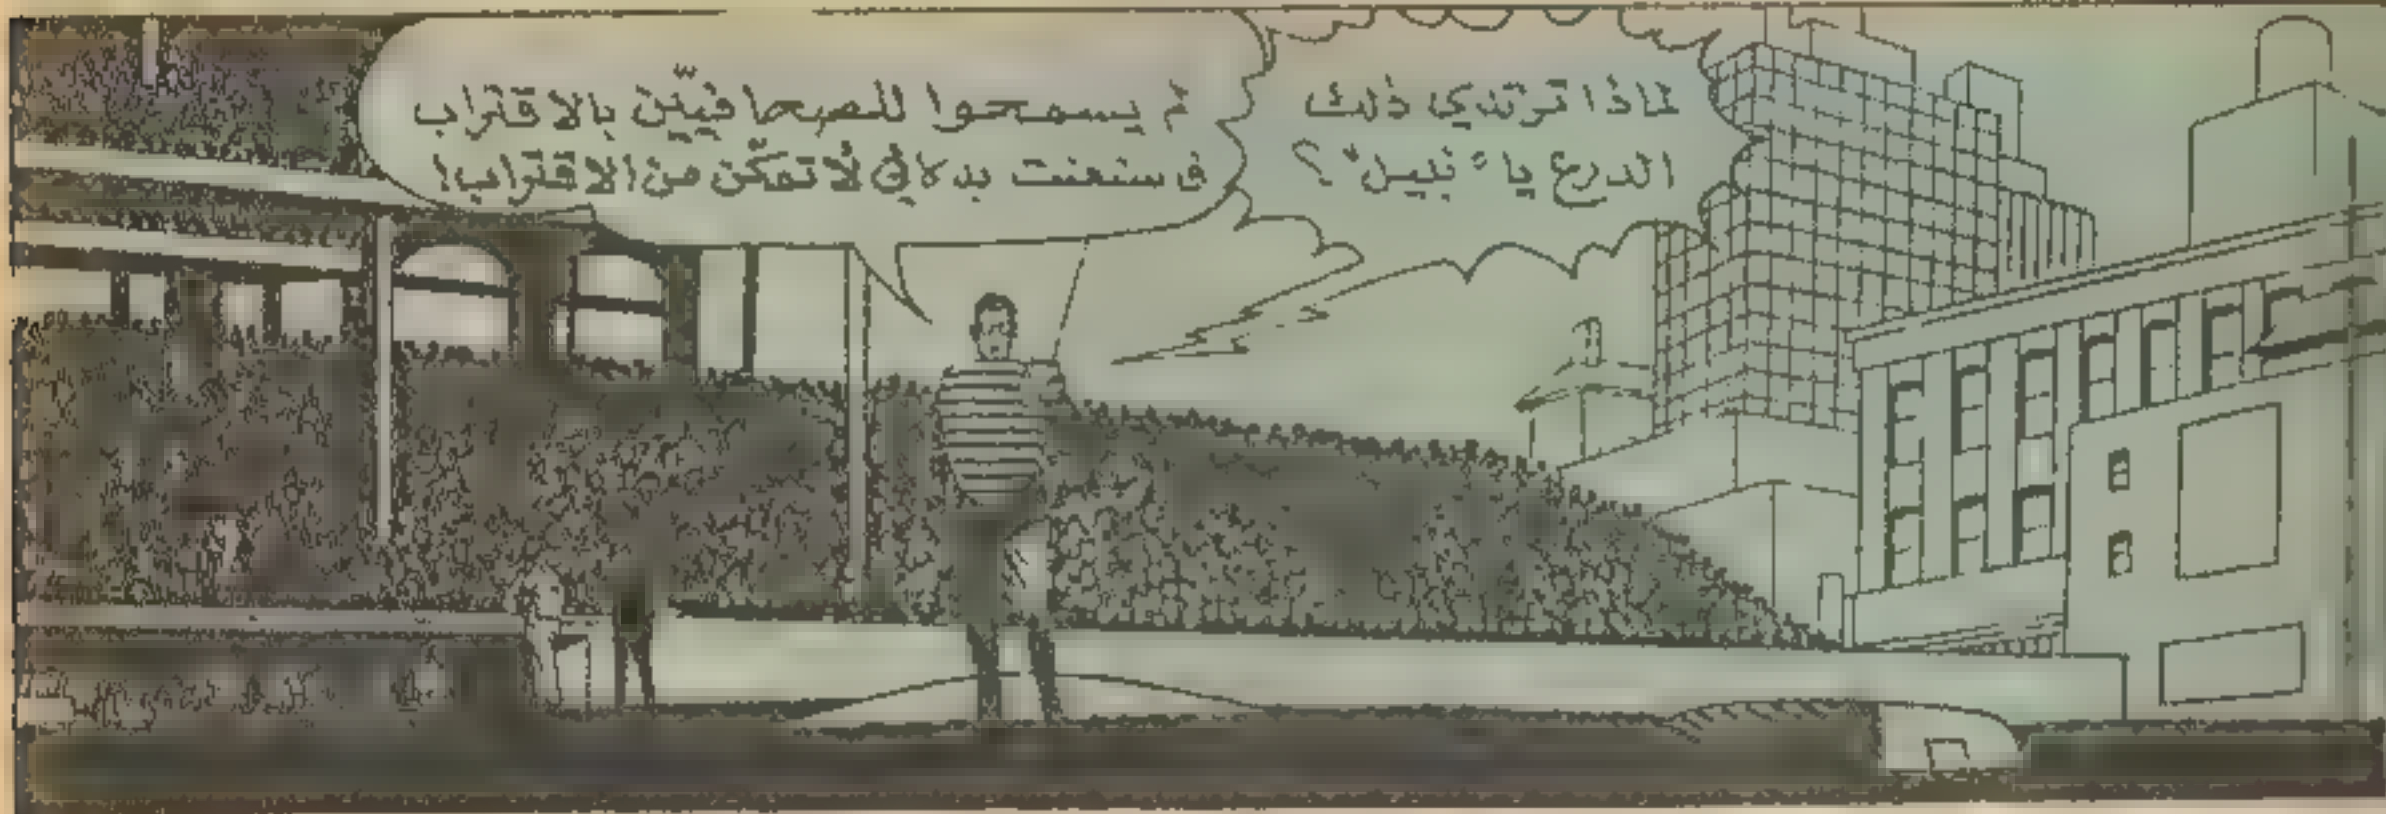 لماذا ترتدي ذلك
الدرع يا "نبيل" ؟
لم يسمحوا للصحافيّين بالاقتراب
بدلاً لأتمكّن من الاقتراب!